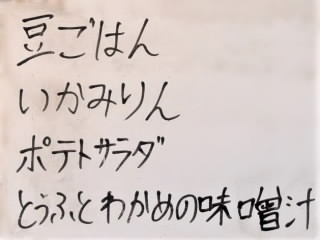 豆ごはん
いかみりん
ポテトサラダ
とうふとわかめの味噌汁